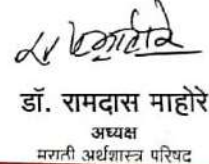 डॉ. रामदास माहोरे
अध्यक्ष
मराठी अर्थशास्त्र परिषद